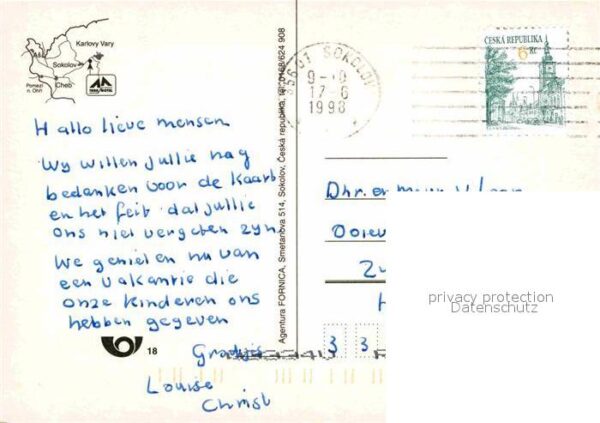 Karlovy Vary
Sokolov
Cheb
Pomezí
n. Ohří
Hallo lieve mensen
Wy willen jullie nag
bedanken voor de Kaart
en het feit dat jullie
ons niet vergeten zyn.
We genieten nu van
een vakantie die
onze kinderen ons
hebben gegeven
Louise
Christ
18
Agentura FORNICA, Smetanova 514, Sokolov, Česká republika, tel. 0168/624 908
356 01 SOKOLOV
17-6
1998
ČESKÁ REPUBLIKA
6 Kč
Dhr. en mevr
privacy protection
Datenschutz
3 3